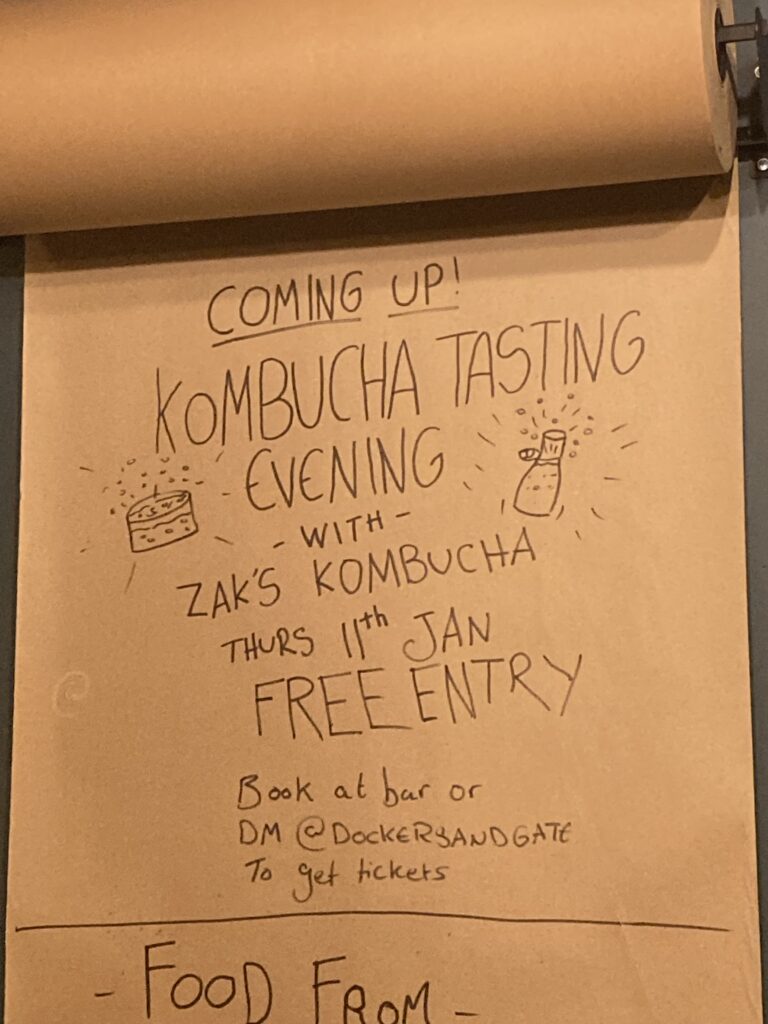 COMING UP!
KOMBUCHA TASTING
EVENING
- WITH -
ZAK'S KOMBUCHA
THURS 11th JAN
FREE ENTRY
Book at bar or
DM @DOCKERSANDGATE
To get tickets
- FOOD FROM -